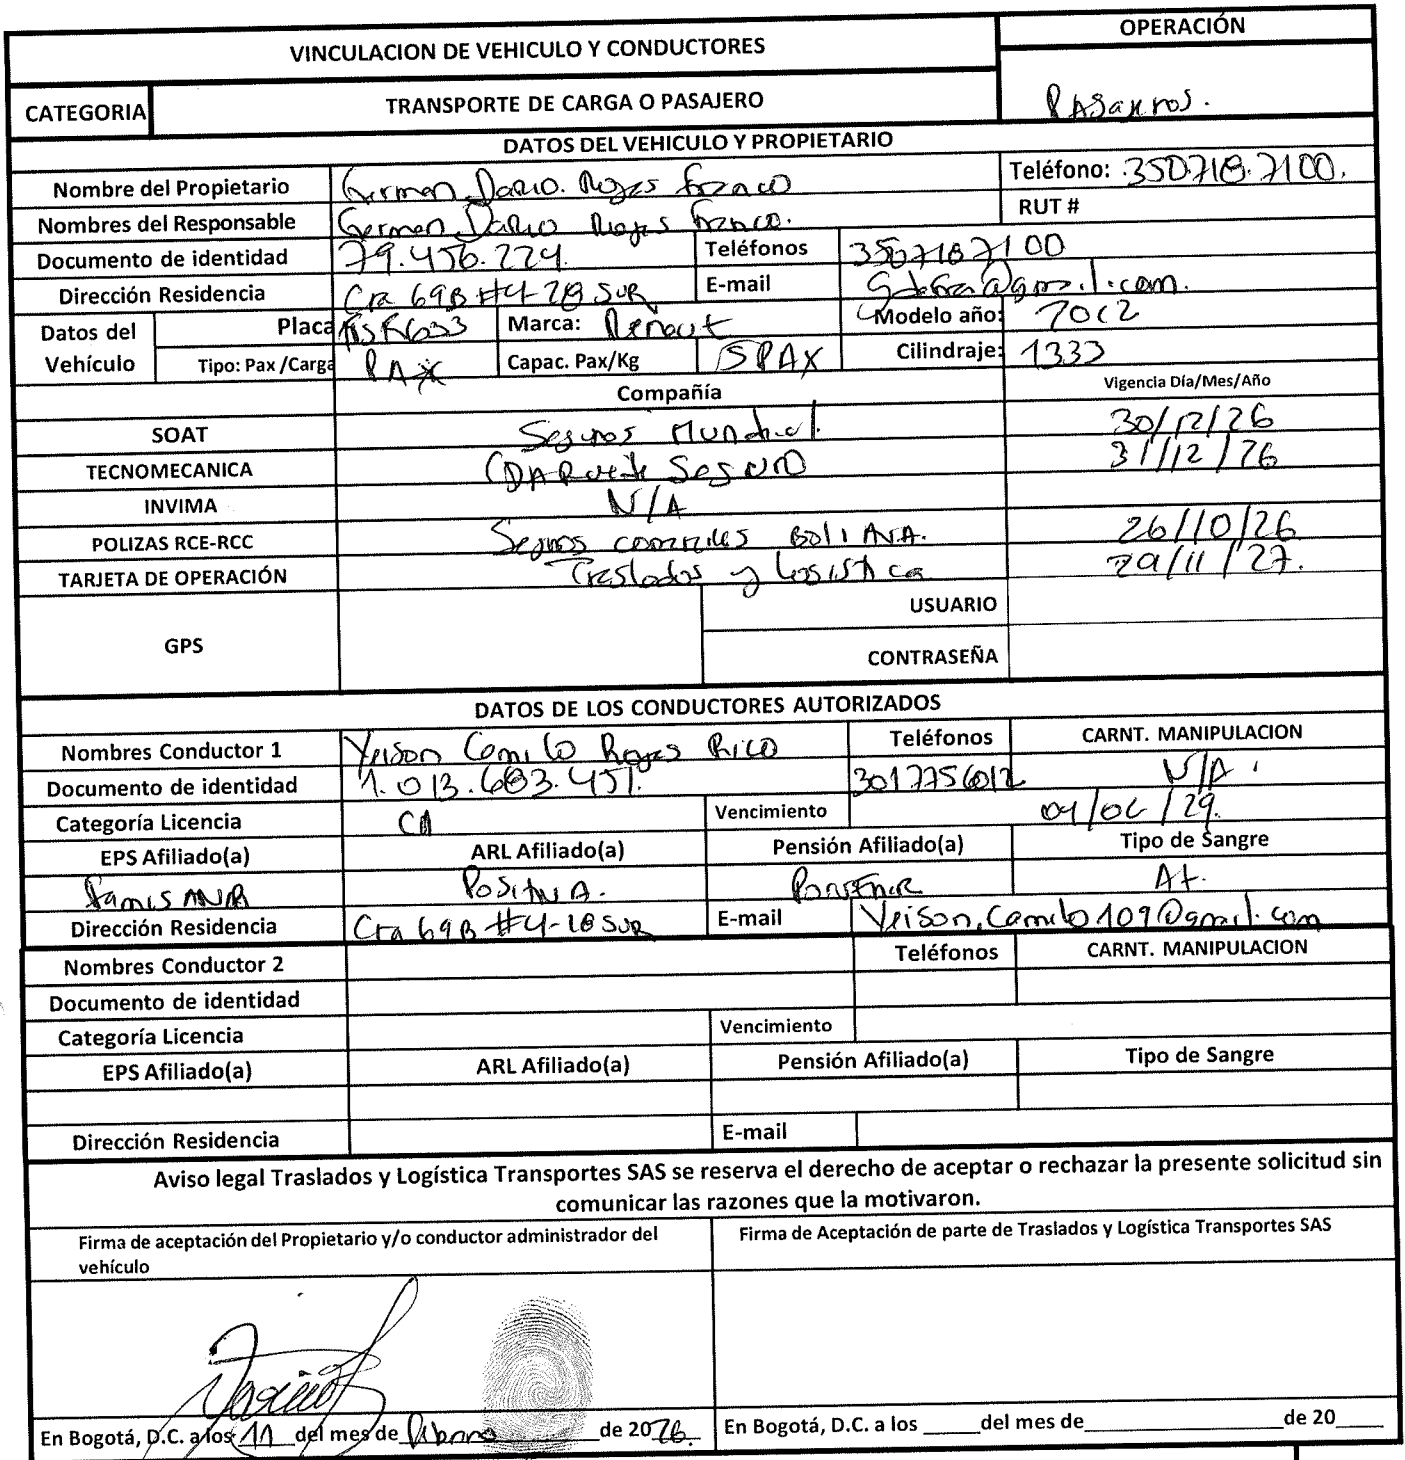 VINCULACION DE VEHICULO Y CONDUCTORES
OPERACIÓN
CATEGORIA
TRANSPORTE DE CARGA O PASAJERO
PASAJEROS.
DATOS DEL VEHICULO Y PROPIETARIO
Nombre del Propietario German Dario. Rojas Franco Teléfono: 350718.7100.
Nombres del Responsable German Dario Rojas Franco. RUT #
Documento de identidad 79.456.224. Teléfonos 3507187100
Dirección Residencia Cra 69B #4-28 SUR E-mail @gmail.com.
Datos del Vehículo Placa Marca: Renaut Modelo año: 2012
Tipo: Pax /Carga PAX Capac. Pax/Kg 5PAX Cilindraje: 1333
Compañía Vigencia Día/Mes/Año
SOAT Seguros Mundial. 30/12/26
TECNOMECANICA CDA Seguro 31/12/26
INVIMA N/A
POLIZAS RCE-RCC Seguros BOLIVAR. 26/10/26
TARJETA DE OPERACIÓN Traslados y Logistica 29/11/27.
GPS USUARIO
CONTRASEÑA
DATOS DE LOS CONDUCTORES AUTORIZADOS
Nombres Conductor 1 Yeison Camilo Rojas Rico Teléfonos CARNT. MANIPULACION
Documento de identidad 1.013.683.451. 3017756012 N/A
Categoría Licencia Vencimiento /29.
EPS Afiliado(a) ARL Afiliado(a) Pensión Afiliado(a) Tipo de Sangre
Famisanar Positiva. Porvenir A+.
Dirección Residencia Cra 69B #4-28 SUR E-mail Yeison.Camilo109@gmail.com
Nombres Conductor 2 Teléfonos CARNT. MANIPULACION
Documento de identidad
Categoría Licencia Vencimiento
EPS Afiliado(a) ARL Afiliado(a) Pensión Afiliado(a) Tipo de Sangre
Dirección Residencia E-mail
Aviso legal Traslados y Logística Transportes SAS se reserva el derecho de aceptar o rechazar la presente solicitud sin
comunicar las razones que la motivaron.
Firma de aceptación del Propietario y/o conductor administrador del
vehículo
Firma de Aceptación de parte de Traslados y Logística Transportes SAS
En Bogotá, D.C. a los 11 del mes de Febrero de 2026.
En Bogotá, D.C. a los _____ del mes de_____ de 20____